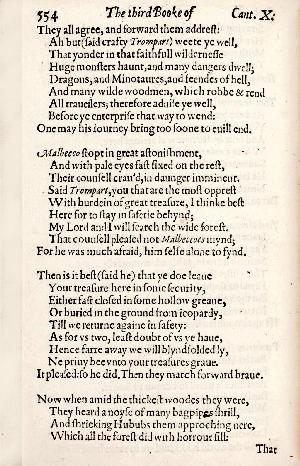 554 The third Booke of Cant. X.
They all agree, and forward them addrest:
Ah but (said crafty Trompart) weete ye well,
That yonder in that faithfull wildernesse
Huge monsters haunt, and many dangers dwell;
Dragons, and Minotaures, and feendes of hell,
And many wilde woodmen, which robbe & rend
All traueilers; therefore aduise ye well,
Before ye enterprise that way to wend:
One may his iourney bring too soone to euill end.
Malbecco stopt in great astonishment,
And with pale eyes fast fixed on the rest,
Their counsell crau'd, in daunger imminent.
Said Trompart, you that are the most opprest
With burdein of great treasure, I thinke best
Here for to stay in safetie behynd;
My Lord and I will search the wide forest.
That counsell pleased not Malbeccoes mynd;
For he was much afraid, him selfe alone to fynd.
Then is it best (said he) that ye doe leaue
Your treasure here in some security,
Either fast closed in some hollow greaue,
Or buried in the ground from ieopardy,
Till we returne againe in safety:
As for vs two, least doubt of vs ye haue,
Hence farre away we will blyndfolded ly,
Ne priuy bee vnto your treasures graue.
It pleased: so he did. Then they march forward braue.
Now when amid the thickest woodes they were,
They heard a noyse of many bagpipes shrill,
And shricking Hububs them approching nere,
Which all the forest did with horrour fill:
That